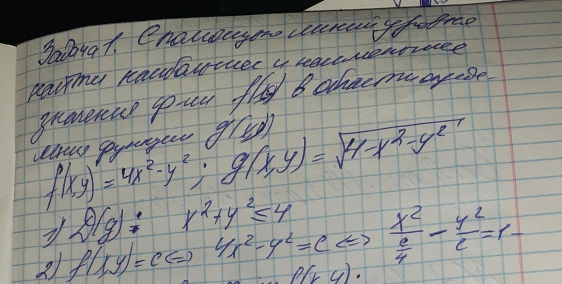 Задача 1. С помощью линий уровня
найти наибольшее и наименьшее
значения ф-ии f(x,y) в области опреде-
ления функции g(x,y)
f(x,y) = 4x² - y² ; g(x,y) = √4-x²-y²
1) D(g): x² + y² ≤ 4
2) f(x,y) = c <=> 4x² - y² = c <=> x²/(c/4) - y²/c = 1 -
f(x,y).